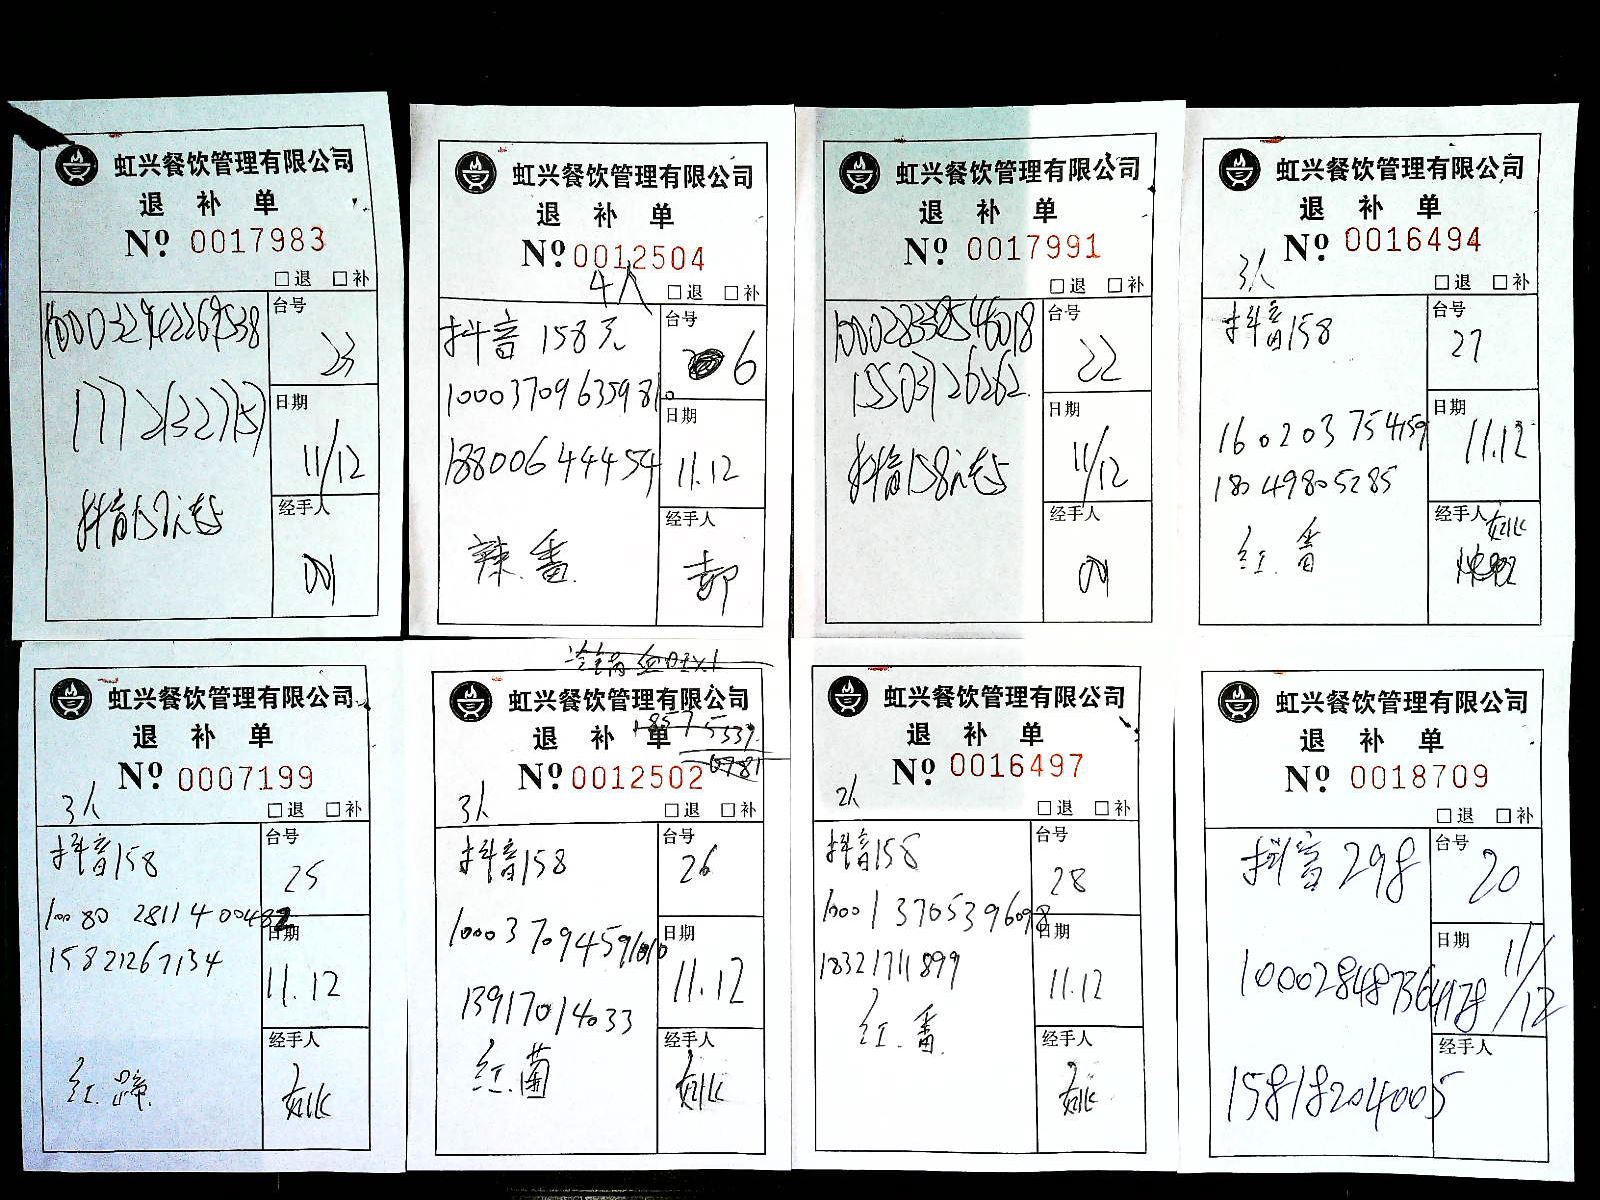 虹兴餐饮管理有限公司
退 补 单
Nº 0017983
□退 □补
台号
23
日期
11/12
经手人
虹兴餐饮管理有限公司
退 补 单
Nº 0012504
4人
□退 □补
抖音 158元
18800644454
辣.番.
台号
6
日期
11.12
经手人
虹兴餐饮管理有限公司
退 补 单
Nº 0017991
□退 □补
15503726262
抖音158元套
台号
22
日期
11/12
经手人
虹兴餐饮管理有限公司
退 补 单
Nº 0016494
3人
□退 □补
抖音158
18049805285
红.番
台号
27
日期
11.12
经手人
虹兴餐饮管理有限公司
退 补 单
Nº 0007199
3人
□退 □补
抖音158
15821267134
红.蹄.
台号
25
日期
11.12
经手人
虹兴餐饮管理有限公司
退 补 单
Nº 0012502
3人
□退 □补
抖音158
13917014033
红.菌
台号
26
日期
11.12
经手人
虹兴餐饮管理有限公司
退 补 单
Nº 0016497
2人
□退 □补
抖音158
100013705396098
18321711899
红.番.
台号
28
日期
11.12
经手人
虹兴餐饮管理有限公司
退 补 单
Nº 0018709
□退 □补
抖音298
100028487364178
15818204005
台号
20
日期
11/12
经手人